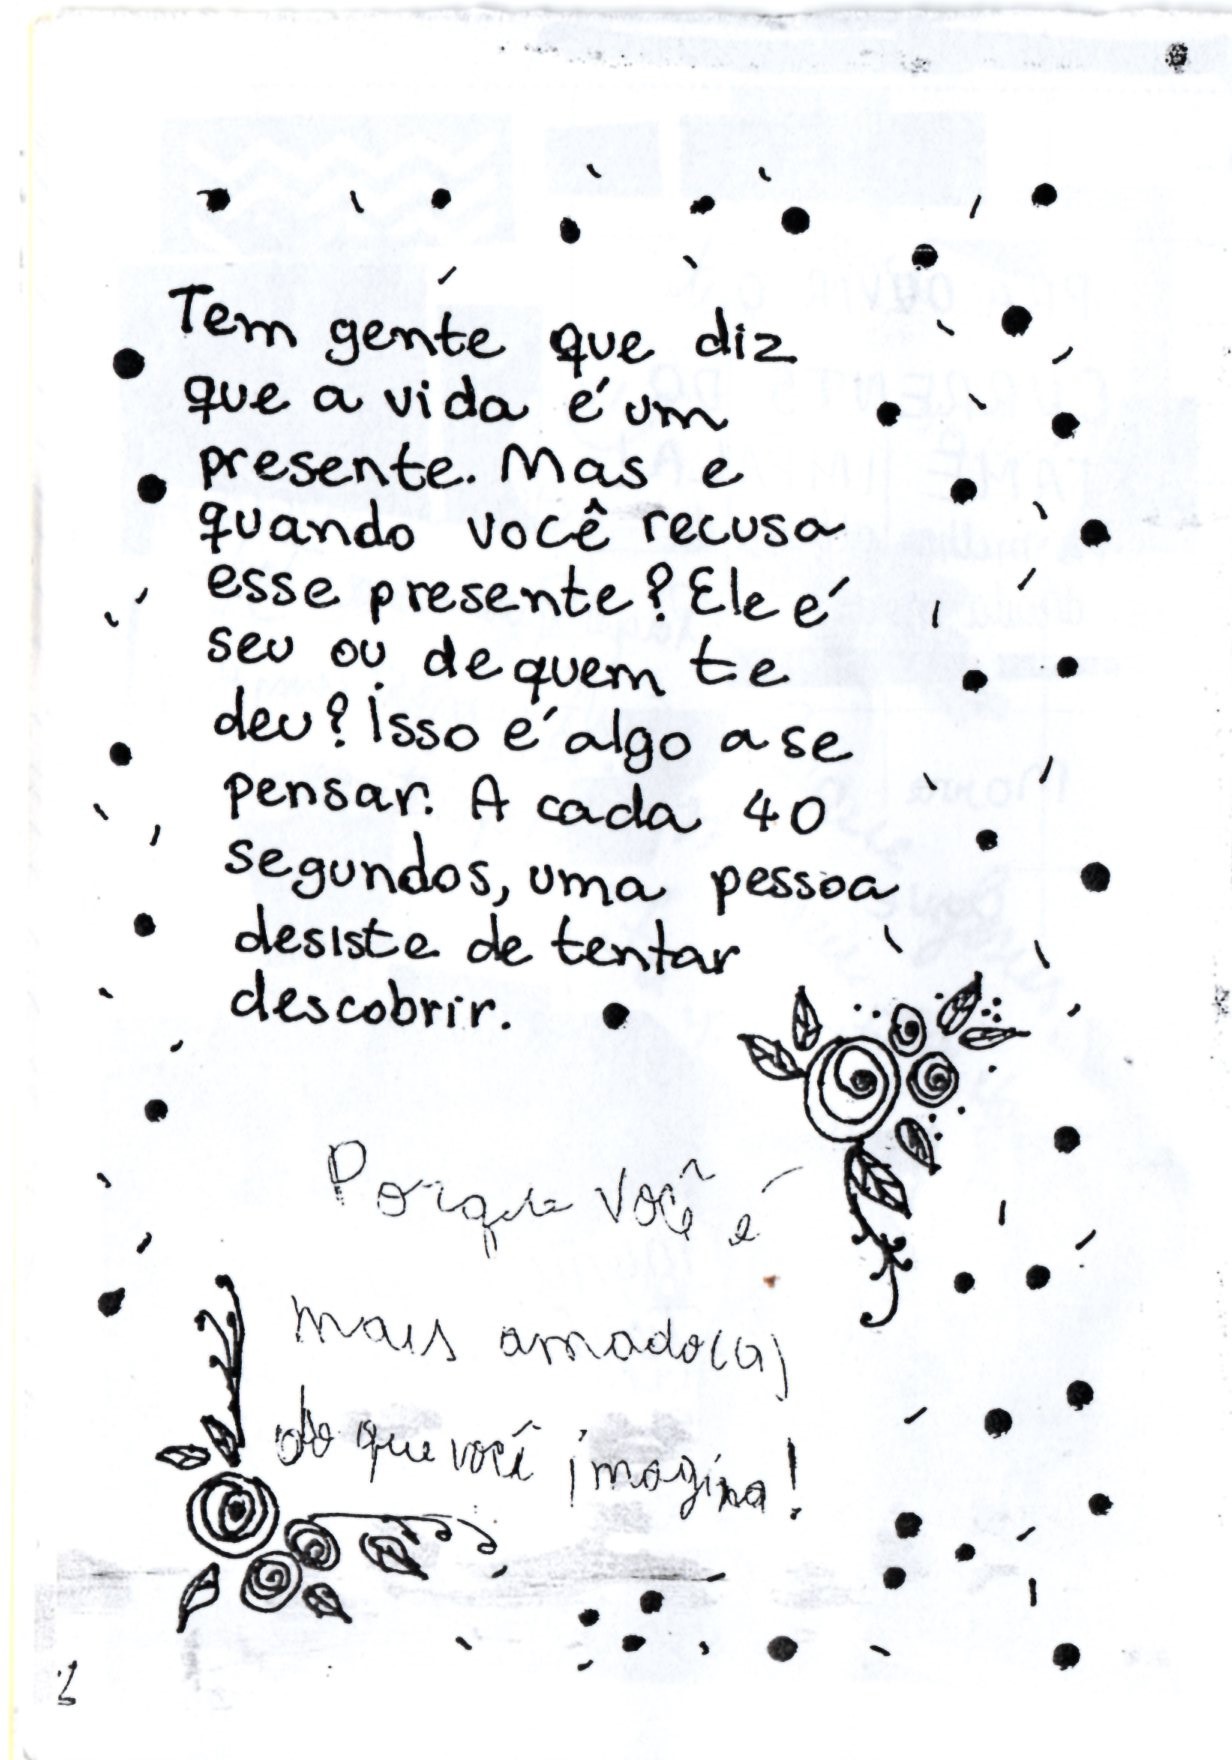 Tem gente que diz
que a vida é um
presente. Mas e
quando você recusa
esse presente? Ele é
seu ou de quem te
deu? Isso é algo a se
pensar. A cada 40
segundos, uma pessoa
desiste de tentar
descobrir.
Porque você é
mais amado(a)
do que você imagina!